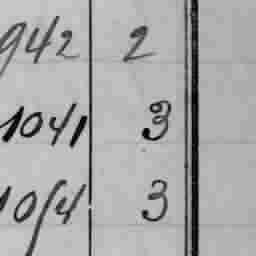 942 2
1041 3
1054 3